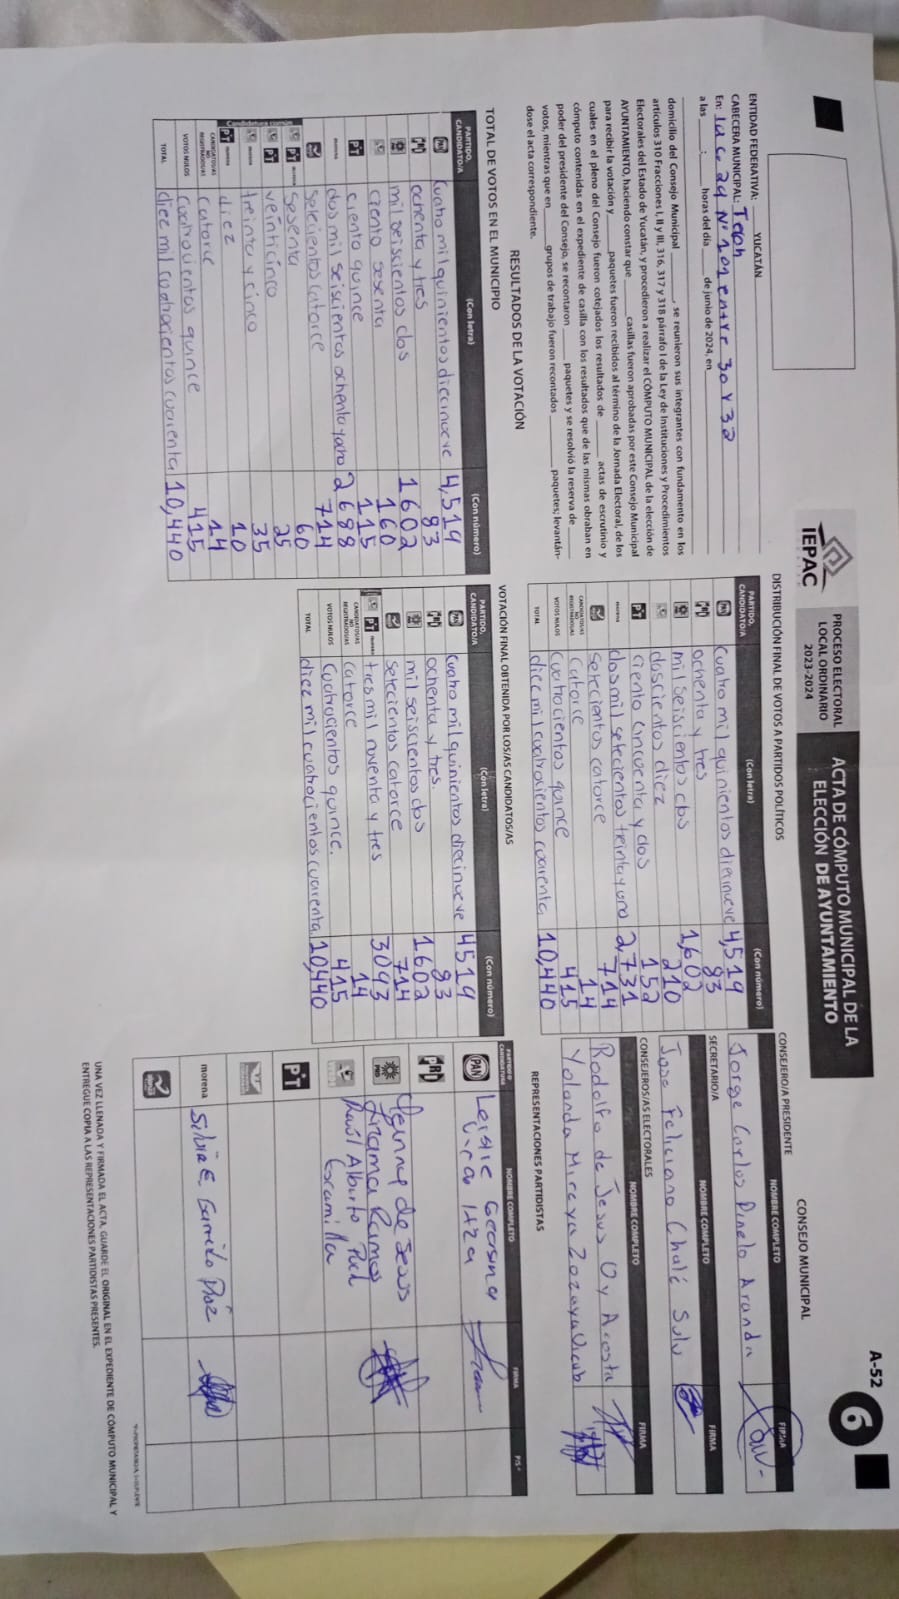 A-52
6
IEPAC
PROCESO ELECTORAL
LOCAL ORDINARIO
2023-2024
ACTA DE CÓMPUTO MUNICIPAL DE LA
ELECCIÓN DE AYUNTAMIENTO
ENTIDAD FEDERATIVA: YUCATÁN
CABECERA MUNICIPAL: Teoh
En: la c. 29 N° 101 entre 30 y 32
a las ____:____ horas del día ____ de junio de 2024, en
domicilio del Consejo Municipal ____, se reunieron sus integrantes con fundamento en los
artículos 310 Fracciones I, II y III, 316, 317 y 318 párrafo I de la Ley de Instituciones y Procedimientos
Electorales del Estado de Yucatán, y procedieron a realizar el CÓMPUTO MUNICIPAL de la elección de
AYUNTAMIENTO, haciendo constar que ____ casillas fueron aprobadas por este Consejo Municipal
para recibir la votación y ____ paquetes fueron recibidos al término de la Jornada Electoral, de los
cuales en el pleno del Consejo fueron cotejados los resultados de ____ actas de escrutinio y
cómputo contenidas en el expediente de casilla con los resultados que de las mismas obraban en
poder del presidente del Consejo, se recontaron ____ paquetes y se resolvió la reserva de ____
votos, mientras que en ____ grupos de trabajo fueron recontados ____ paquetes; levantán-
dose el acta correspondiente.
RESULTADOS DE LA VOTACIÓN
TOTAL DE VOTOS EN EL MUNICIPIO
PARTIDO, CANDIDATO/A (Con letra) (Con número)
PAN Cuatro mil quinientos diecinueve 4,519
PRI ochenta y tres 83
mil seiscientos dos 1602
ciento sesenta 160
PT ciento quince 115
morena dos mil seiscientos ochenta y ocho 2688
setecientos catorce 714
Candidatura común
PT morena sesenta 60
PT veinticinco 25
morena treinta y cinco 35
PT morena diez 10
CANDIDATOS/AS NO REGISTRADOS/AS catorce 14
VOTOS NULOS cuatrocientos quince 415
TOTAL diez mil cuatrocientos cuarenta 10,440
DISTRIBUCIÓN FINAL DE VOTOS A PARTIDOS POLÍTICOS
PARTIDO, CANDIDATO/A (Con letra) (Con número)
PAN cuatro mil quinientos diecinueve 4,519
PRI ochenta y tres 83
mil seiscientos dos 1,602
doscientos diez 210
PT ciento cincuenta y dos 152
morena dos mil setecientos treinta y uno 2,731
setecientos catorce 714
CANDIDATOS/AS NO REGISTRADOS/AS catorce 14
VOTOS NULOS cuatrocientos quince 415
TOTAL diez mil cuatrocientos cuarenta 10,440
VOTACIÓN FINAL OBTENIDA POR LOS/AS CANDIDATOS/AS
PARTIDO, CANDIDATO/A (Con letra) (Con número)
PAN cuatro mil quinientos diecinueve 4519
PRI ochenta y tres. 83
mil seiscientos dos 1602
setecientos catorce 714
PT morena tres mil noventa y tres 3093
CANDIDATOS/AS NO REGISTRADOS/AS catorce 14
VOTOS NULOS cuatrocientos quince. 415
TOTAL diez mil cuatrocientos cuarenta. 10,440
CONSEJO MUNICIPAL
CONSEJERO/A PRESIDENTE NOMBRE COMPLETO FIRMA
Jorge Carlos Pinelo Aranda
SECRETARIO/A NOMBRE COMPLETO FIRMA
Jose Feliciano Chalé Sulu
CONSEJEROS/AS ELECTORALES NOMBRE COMPLETO FIRMA
Rodolfo de Jesus Uy Acosta
Yolanda Mireya Zozaya
REPRESENTACIONES PARTIDISTAS
PARTIDO O CANDIDATURA NOMBRE COMPLETO FIRMA P/S*
PAN Leislie Geeosna
Itza
PRI
PRD Jenny de Jesus
Lizama Ramos
Raul Alberto
Escamilla
PT
morena Silvia E. Garrido
*P=PROPIETARIO/A, S=SUPLENTE
UNA VEZ LLENADA Y FIRMADA EL ACTA, GUARDE EL ORIGINAL EN EL EXPEDIENTE DE CÓMPUTO MUNICIPAL Y
ENTREGUE COPIA A LAS REPRESENTACIONES PARTIDISTAS PRESENTES.